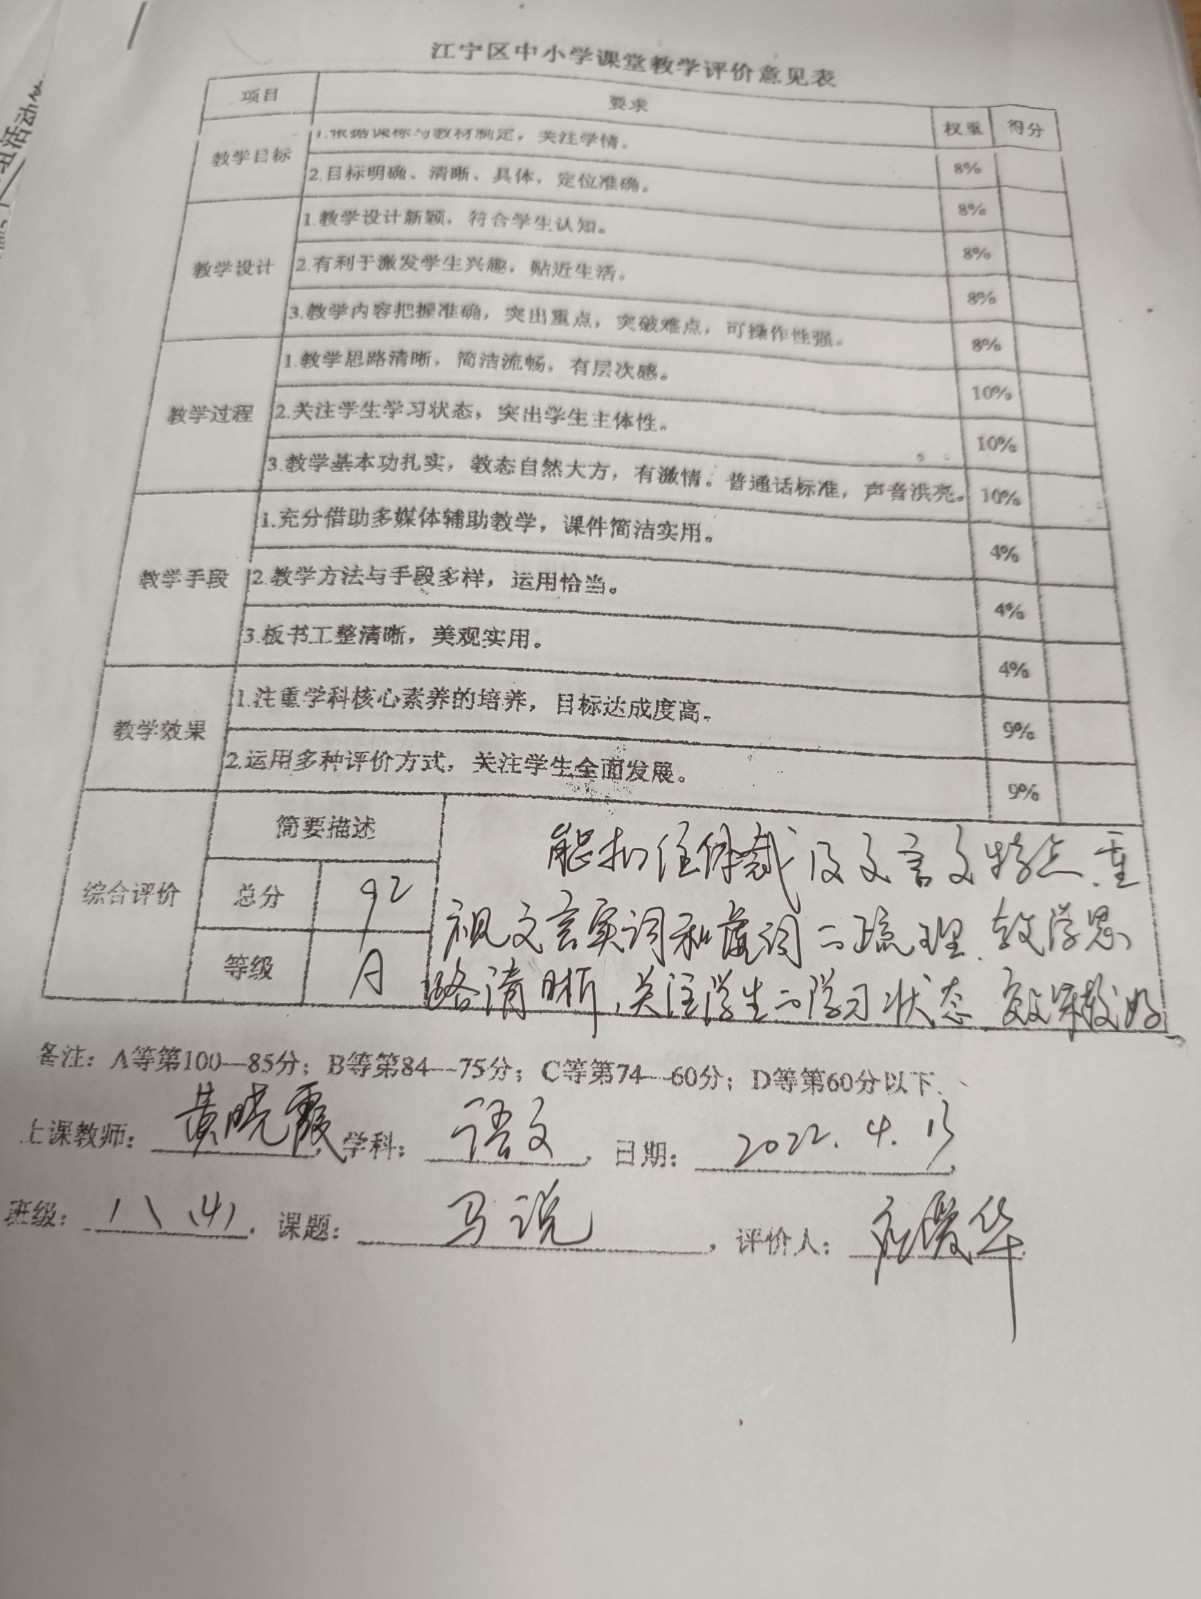 江宁区中小学课堂教学评价意见表
项目 要求 权重 得分
教学目标 1.依据课标与教材制定，关注学情。 8%
2.目标明确、清晰、具体，定位准确。 8%
教学设计 1.教学设计新颖，符合学生认知。 8%
2.有利于激发学生兴趣，贴近生活。 8%
3.教学内容把握准确，突出重点，突破难点，可操作性强。 8%
教学过程 1.教学思路清晰，简洁流畅，有层次感。 10%
2.关注学生学习状态，突出学生主体性。 10%
3.教学基本功扎实，教态自然大方，有激情。普通话标准，声音洪亮。 10%
教学手段 1.充分借助多媒体辅助教学，课件简洁实用。 4%
2.教学方法与手段多样，运用恰当。 4%
3.板书工整清晰，美观实用。 4%
教学效果 1.注重学科核心素养的培养，目标达成度高。 9%
2.运用多种评价方式，关注学生全面发展。 9%
综合评价 简要描述
总分 92
等级 A
能扣住体裁及文言文特点.重
视文言实词和虚词的疏理.教学思
路清晰,关注学生的学习状态.效果较好
备注：A等第100—85分；B等第84—75分；C等第74—60分；D等第60分以下.
上课教师：黄晓霞 学科：语文，日期：2022.4.13
班级：八(4). 课题：马说，评价人：